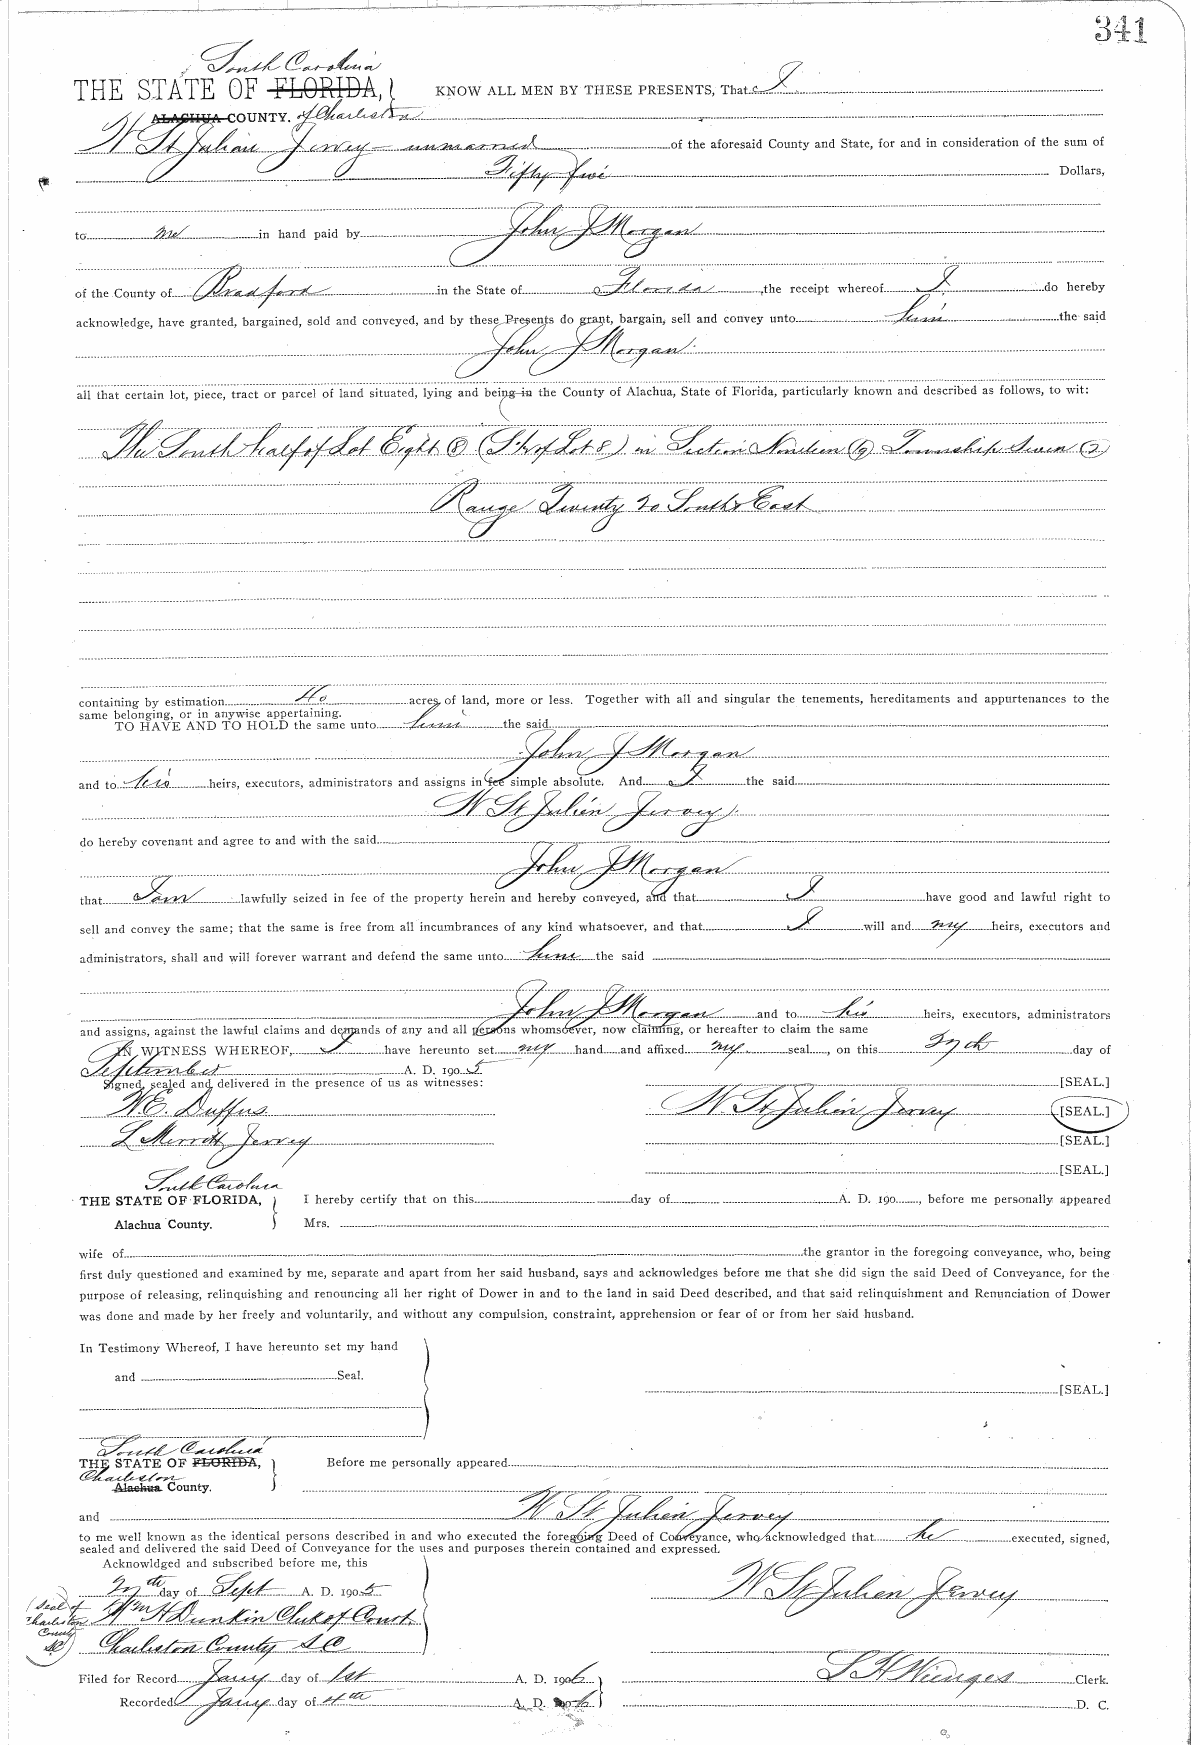 341
South Carolina
THE STATE OF FLORIDA, KNOW ALL MEN BY THESE PRESENTS, That I
ALACHUA COUNTY. of Charleston
W St Julien Jervey - unmarried of the aforesaid County and State, for and in consideration of the sum of
Fifty five Dollars,
to me in hand paid by John J Morgan
of the County of Bradford in the State of Florida, the receipt whereof I do hereby
acknowledge, have granted, bargained, sold and conveyed, and by these Presents do grant, bargain, sell and convey unto him the said
John J Morgan
all that certain lot, piece, tract or parcel of land situated, lying and being in the County of Alachua, State of Florida, particularly known and described as follows, to wit:
The South half of Lot Eight (8) (S ½ of Lot 8) in Section Nineteen (19) Township Seven (7)
Range Twenty 20 South & East
containing by estimation 40 acres of land, more or less. Together with all and singular the tenements, hereditaments and appurtenances to the
same belonging, or in anywise appertaining.
TO HAVE AND TO HOLD the same unto him the said
John J Morgan
and to his heirs, executors, administrators and assigns in fee simple absolute. And I the said
W St Julien Jervey
do hereby covenant and agree to and with the said
John J Morgan
that I am lawfully seized in fee of the property herein and hereby conveyed, and that I have good and lawful right to
sell and convey the same; that the same is free from all incumbrances of any kind whatsoever, and that I will and my heirs, executors and
administrators, shall and will forever warrant and defend the same unto him the said
John J Morgan and to his heirs, executors, administrators
and assigns, against the lawful claims and demands of any and all persons whomsoever, now claiming, or hereafter to claim the same
IN WITNESS WHEREOF, I have hereunto set my hand and affixed my seal, on this 27th day of
September A. D. 1905
Signed, sealed and delivered in the presence of us as witnesses: [SEAL.]
W.E. Duffus W St Julien Jervey [SEAL.]
L Merritt Jervey [SEAL.]
[SEAL.]
South Carolina
THE STATE OF FLORIDA, I hereby certify that on this day of A. D. 190 , before me personally appeared
Alachua County. Mrs.
wife of the grantor in the foregoing conveyance, who, being
first duly questioned and examined by me, separate and apart from her said husband, says and acknowledges before me that she did sign the said Deed of Conveyance, for the
purpose of releasing, relinquishing and renouncing all her right of Dower in and to the land in said Deed described, and that said relinquishment and Renunciation of Dower
was done and made by her freely and voluntarily, and without any compulsion, constraint, apprehension or fear of or from her said husband.
In Testimony Whereof, I have hereunto set my hand
and Seal.
[SEAL.]
South Carolina
THE STATE OF FLORIDA, Before me personally appeared
Charleston
Alachua County.
and W St Julien Jervey
to me well known as the identical persons described in and who executed the foregoing Deed of Conveyance, who acknowledged that he executed, signed,
sealed and delivered the said Deed of Conveyance for the uses and purposes therein contained and expressed.
Acknowldged and subscribed before me, this
27th day of Sept A. D. 1905 W St Julien Jervey
(Seal of Charleston County SC) Wm H Dunkin Clerk of Court
Charleston County S C
Filed for Record Jany day of 1st A. D. 1906 S H Wienges Clerk.
Recorded Jany day of 4th A. D. 1906 D. C.